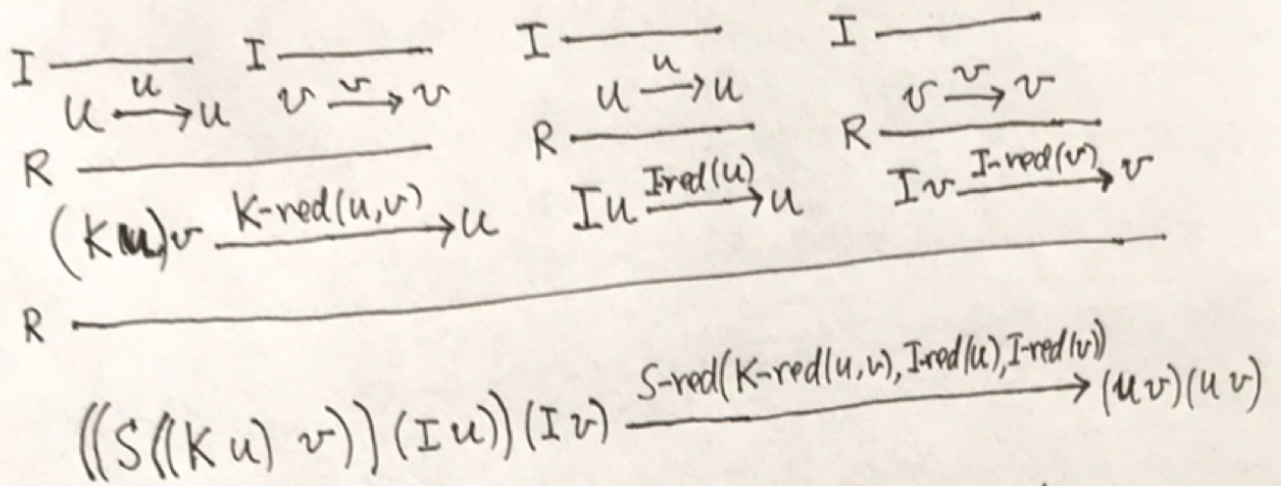 I I I I
u u→ u v v→ v u u→ u v v→ v
R R R
(K u)v K-red(u,v)→ u I u I-red(u)→ u I v I-red(v)→ v
R
((S((K u) v))(I u))(I v) S-red(K-red(u,v), I-red(u), I-red(v))→ (u v)(u v)